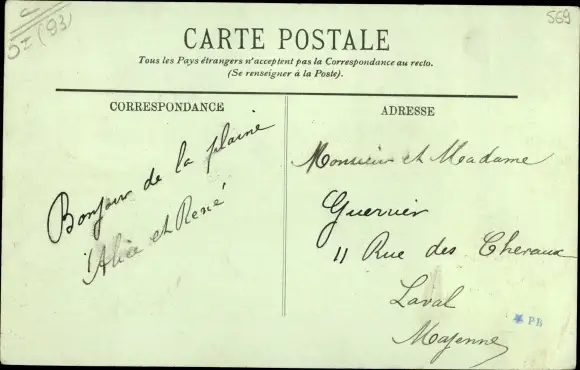 OI (93)
569
CARTE POSTALE
Tous les Pays étrangers n'acceptent pas la Correspondance au recto.
(Se renseigner à la Poste).
CORRESPONDANCE
Bonjour de la plaine
Alice et René
ADRESSE
Monsieur et Madame
Guerrier
11 Rue des Cheraux
Laval
Mayenne
PB